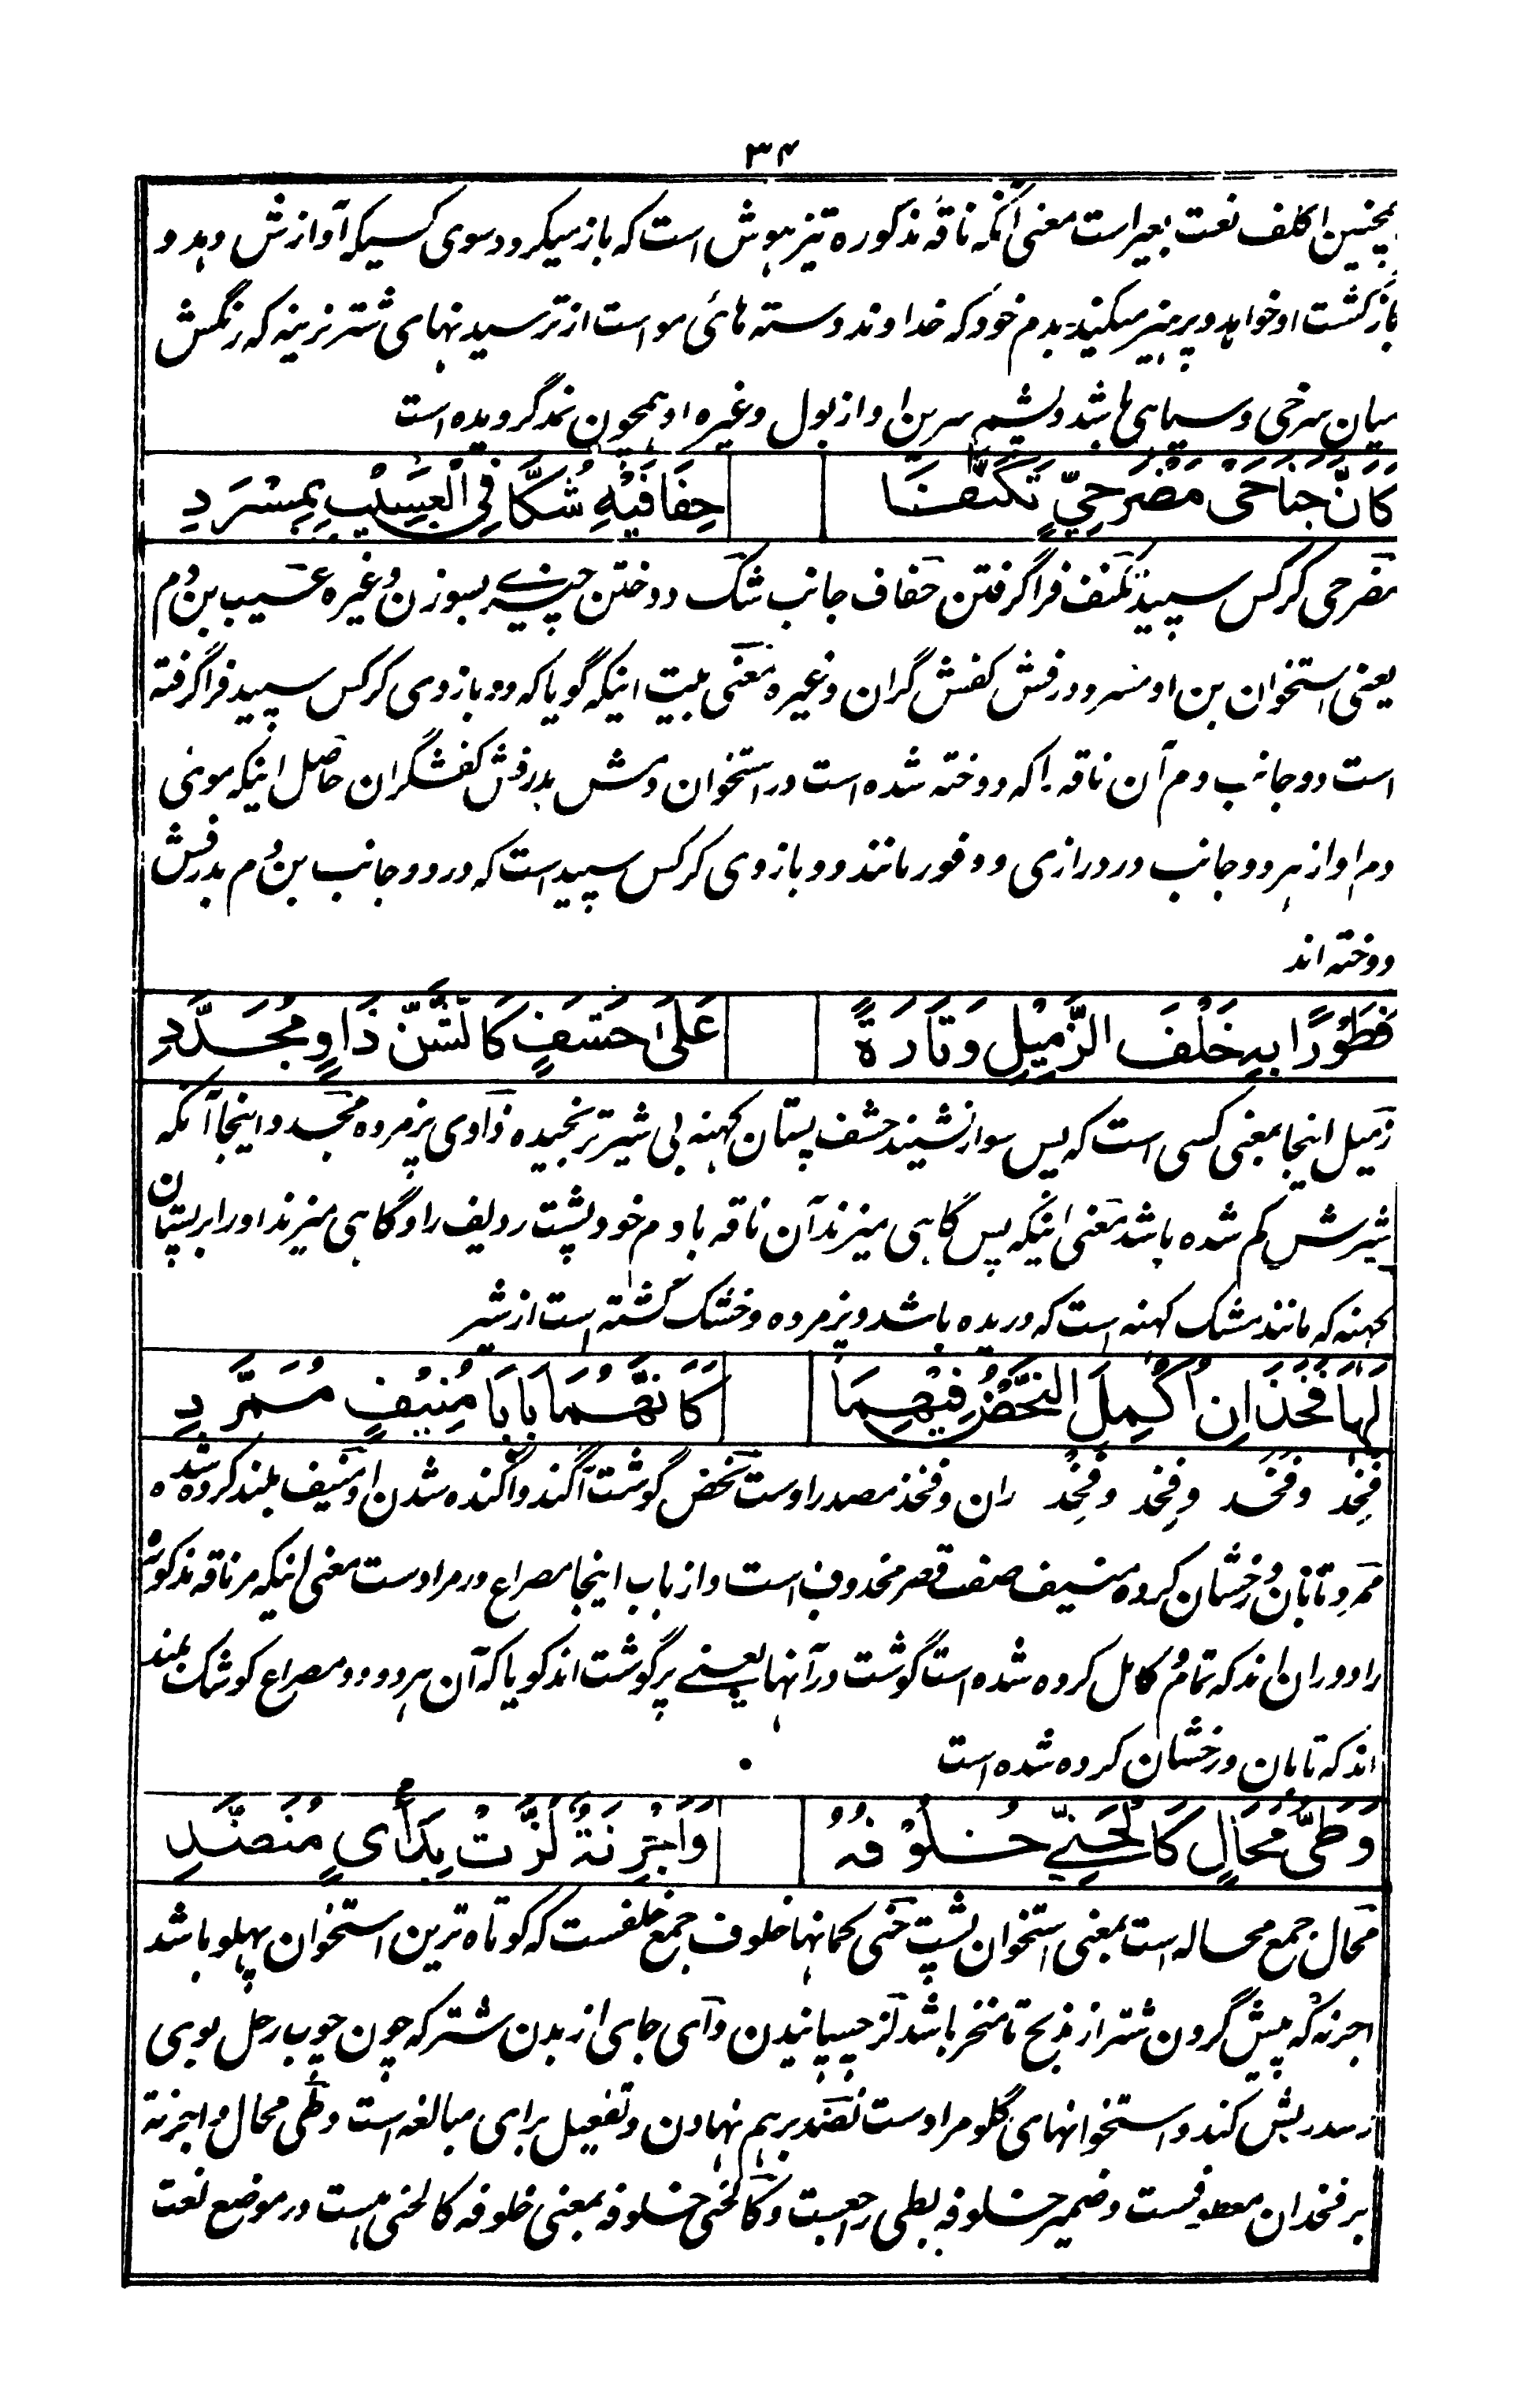 ۳۴
ہمچنین اکلف نعت بعیر است معنی آنکہ ناقۂ مذکورہ تیز ہوش است کہ باز میگرود سوی کسیکہ آوازش دہد و
بازگشت او خواہد و پرہیز میکند بدم خود کہ خداوند دستہ ہائی مو است از ترسیدنہای شتر نرینہ کہ رنگش
میان سرخی و سیاہی باشد و پشم سرین او از بول و غیرہ او ہمچون نمد گردیدہ است
كَاَنَّ جَنَاحَىْ مَضْرَحِيٍّ تَكَنَّفَنَا حِفَافَيْهِ شُكَّا فِي الْعَسِيْبِ بِمِسْرَدِ
مضرحی کرکس سپید تکنف فرا گرفتن حفاف جانب شک دوختن چیزے بسوزن وغیرہ عسیب بن دم
یعنی استخوان بن او مسرد درفش کفش گران وغیرہ معنی بیت اینکہ گویا کہ دو بازوی کرکس سپید فراگرفتہ
است دو جانب دم آن ناقہ را کہ دوختہ شدہ است در استخوان دمش بدرفش کفشگران حاصل اینکہ موئی
دم او از ہر دو جانب در درازی و وفور مانند دو بازوی کرکس سپید است کہ در دو جانب بن دم بدرفش
دوختہ اند
فَطَوْرًا بِهٖ خَلْفَ الزَّمِيْلِ وَتَارَةً عَلٰى حَشَفٍ كَالشَّنِّ ذَاوٍ مُجَدَّدِ
زمیل اینجا بمعنی کسی است کہ پس سوار نشیند حشف پستان کہنہ بی شیر ترنجیدہ ذاوی پژمردہ مجدد اینجا آنکہ
شیرش کم شدہ باشد معنی اینکہ پس گاہی میزند آن ناقہ با دم خود پشت ردیف را و گاہی میزند او را بر پستان
کہنہ کہ مانند مشک کہنہ است کہ دریدہ باشد و پژمردہ و خشک گشتہ است از شیر
لَهَا فَخِذَانِ اُكْمِلَ النَّحْضُ فِيْهِمَا كَاَنَّهُمَا بَابَا مُنِيْفٍ مُمَرَّدِ
فخذ و فخذ و فخذ و فخذ ران و فخذ مصدر اوست نحض گوشت آگندہ و آگندہ شدن او منیف بلند کردہ شدہ
ممرد تابان و رخشان کردہ منیف صفت قصر محذوف است و از باب اینجا مصراع در مراد ست معنی اینکہ مر ناقہ مذکور
را دو ران اند کہ تمام و کامل کردہ شدہ است گوشت در آنہا یعنے پر گوشت اند گویا کہ آن ہر دو دو مصراع کوشک بلند
اند کہ تابان و رخشان کردہ شدہ است
وَطَىُّ مَحَالٍ كَالْحَنِيِّ خُلُوْفُهٗ وَاَجْرِنَةٌ لُزَّتْ بِدَأْيٍ مُنَضَّدِ
محال جمع محالہ است بمعنی استخوان پشت حنی کمانہا خلوف جمع خلف ست کہ کوتاہ ترین استخوان پہلو باشد
اجرنہ کہ پیش گردن شتر از مذبح تا منحر باشد لز چسپانیدن دأی جای از بدن شتر کہ چون چوب رحل بوی
رسد ریش کند و استخوانہای گلو مراد ست نضد برہم نہادن و تفعیل برای مبالغہ است وطی محال و اجرنہ
بر فخذان معطوفست و ضمیر خلوفہ بطی راجعست و کالحنی خلوفہ بمعنی خلوفہ کالحنی ہست در موضع نعت